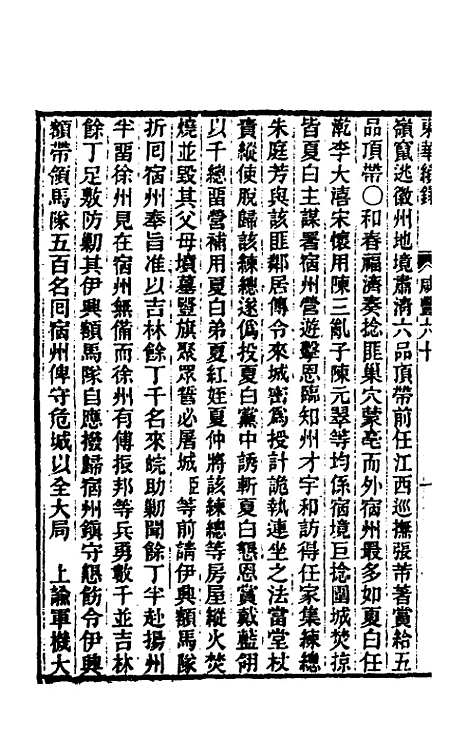 東華續錄　咸豐六十
嶺竄逃徽州地境肅清六品頂帶前任江西巡撫張芾著賞給五
品頂帶〇和春福濟奏捻匪巢穴蒙亳而外宿州最多如夏白任
乾李大濆宋懷用陳三亂子陳元翠等均係宿境巨捻圍城焚掠
皆夏白主謀署宿州營遊擊恩臨知州才宇和訪得任家集練總
朱庭芳與該匪鄰居傳令來城密為授計詭執連坐之法當堂杖
責縱使脫歸該練總遂偽投夏白黨中誘斬夏白懇恩賞戴藍翎
以千總畱營補用夏白弟夏紅姪夏仲將該練總等房屋縱火焚
燒並毀其父母墳墓豎旗聚眾誓必屠城臣等前請伊興額馬隊
折回宿州奉旨准以吉林餘丁千名來皖助勦聞餘丁半赴揚州
半畱徐州見在宿州無備而徐州有傅振邦等兵勇數千並吉林
餘丁足敷防勦其伊興額馬隊自應撥歸宿州鎮守懇飭令伊興
額帶領馬隊五百名回宿州俾守危城以全大局　上諭軍機大